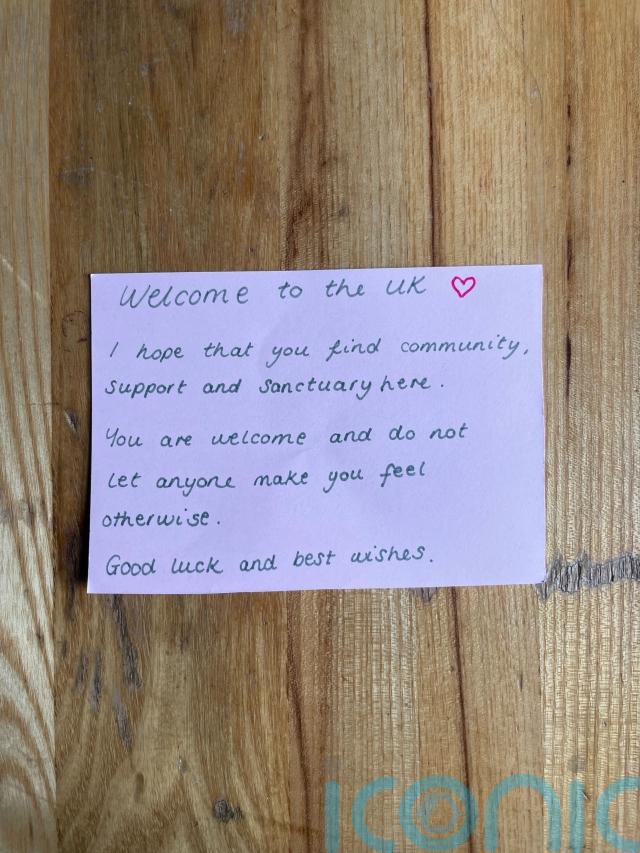 Welcome to the UK ♡
I hope that you find community,
support and sanctuary here.
You are welcome and do not
let anyone make you feel
otherwise.
Good luck and best wishes.
ICONIC